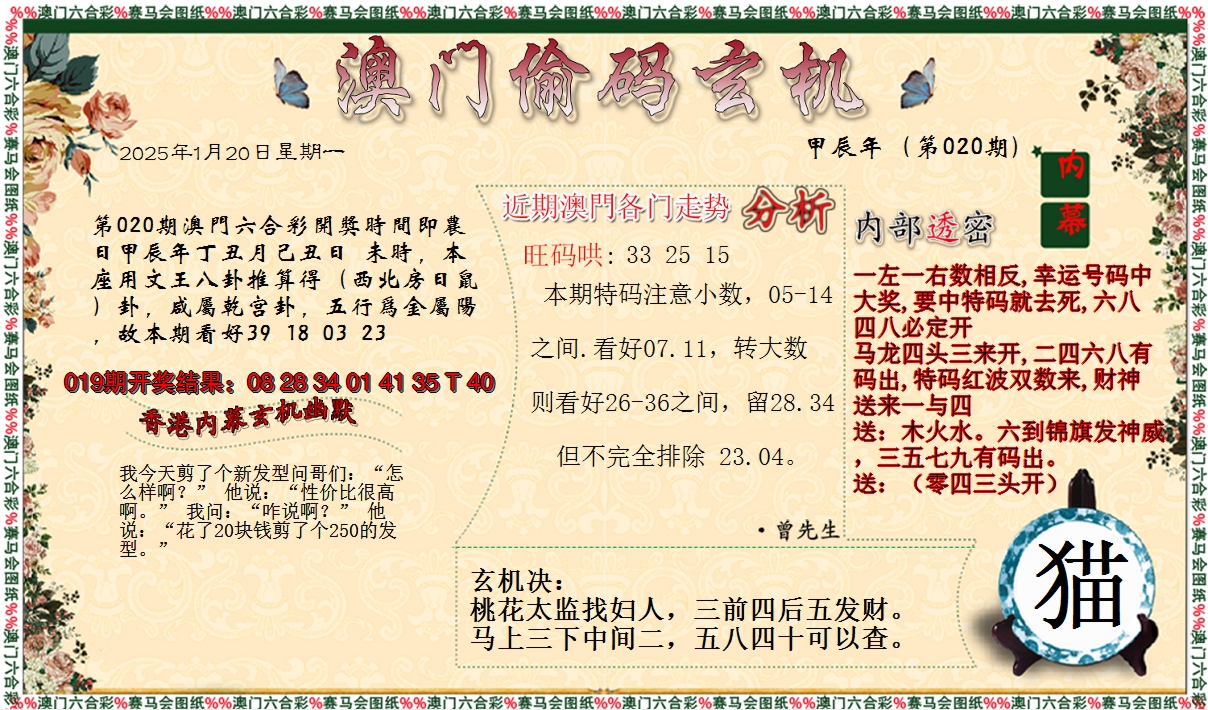 %%澳门六合彩%赛马会图纸%%澳门六合彩%赛马会图纸%%澳门六合彩%赛马会图纸%%澳门六合彩%赛马会图纸%%澳门六合彩%赛马会图纸%%澳门六合彩%赛马会图纸%%
澳门偷码玄机
2025年1月20日星期一
甲辰年（第020期）
内
幕
第020期澳門六合彩開獎時間即農
日甲辰年丁丑月己丑日 未時，本
座用文王八卦推算得（西北房日鼠
）卦，咸屬乾宫卦，五行爲金屬陽
，故本期看好39 18 03 23
019期开奖结果：08 28 34 01 41 35 T 40
香港内幕玄机幽默
我今天剪了个新发型问哥们：“怎
么样啊？” 他说：“性价比很高
啊。” 我问：“咋说啊？” 他
说：“花了20块钱剪了个250的发
型。”
近期澳門各门走势 分析
旺码哄: 33 25 15
本期特码注意小数，05-14
之间.看好07.11，转大数
则看好26-36之间，留28.34
但不完全排除 23.04。
·曾先生
内部透密
一左一右数相反,幸运号码中
大奖,要中特码就去死,六八
四八必定开
马龙四头三来开,二四六八有
码出,特码红波双数来,财神
送来一与四
送：木火水。六到锦旗发神威
，三五七九有码出。
送：（零四三头开）
玄机决：
桃花太监找妇人，三前四后五发财。
马上三下中间二，五八四十可以查。
猫
%%澳门六合彩%赛马会图纸%%澳门六合彩%赛马会图纸%%澳门六合彩%赛马会图纸%%澳门六合彩%赛马会图纸%%澳门六合彩%赛马会图纸%%澳门六合彩%赛马会图纸%%